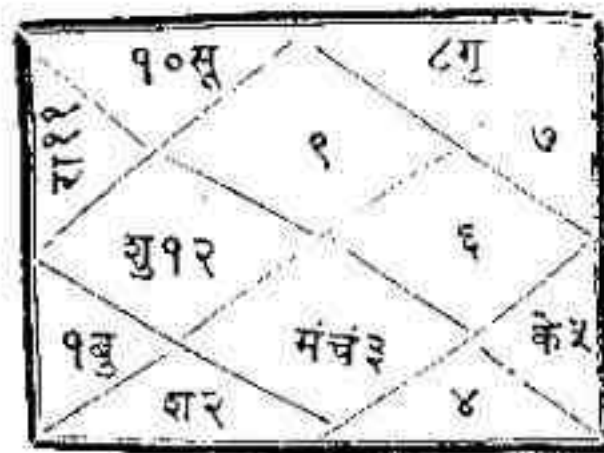 १०सू
८गु
रा११
९
७
शु१२
६
१बु
मंचं३
के५
श२
४